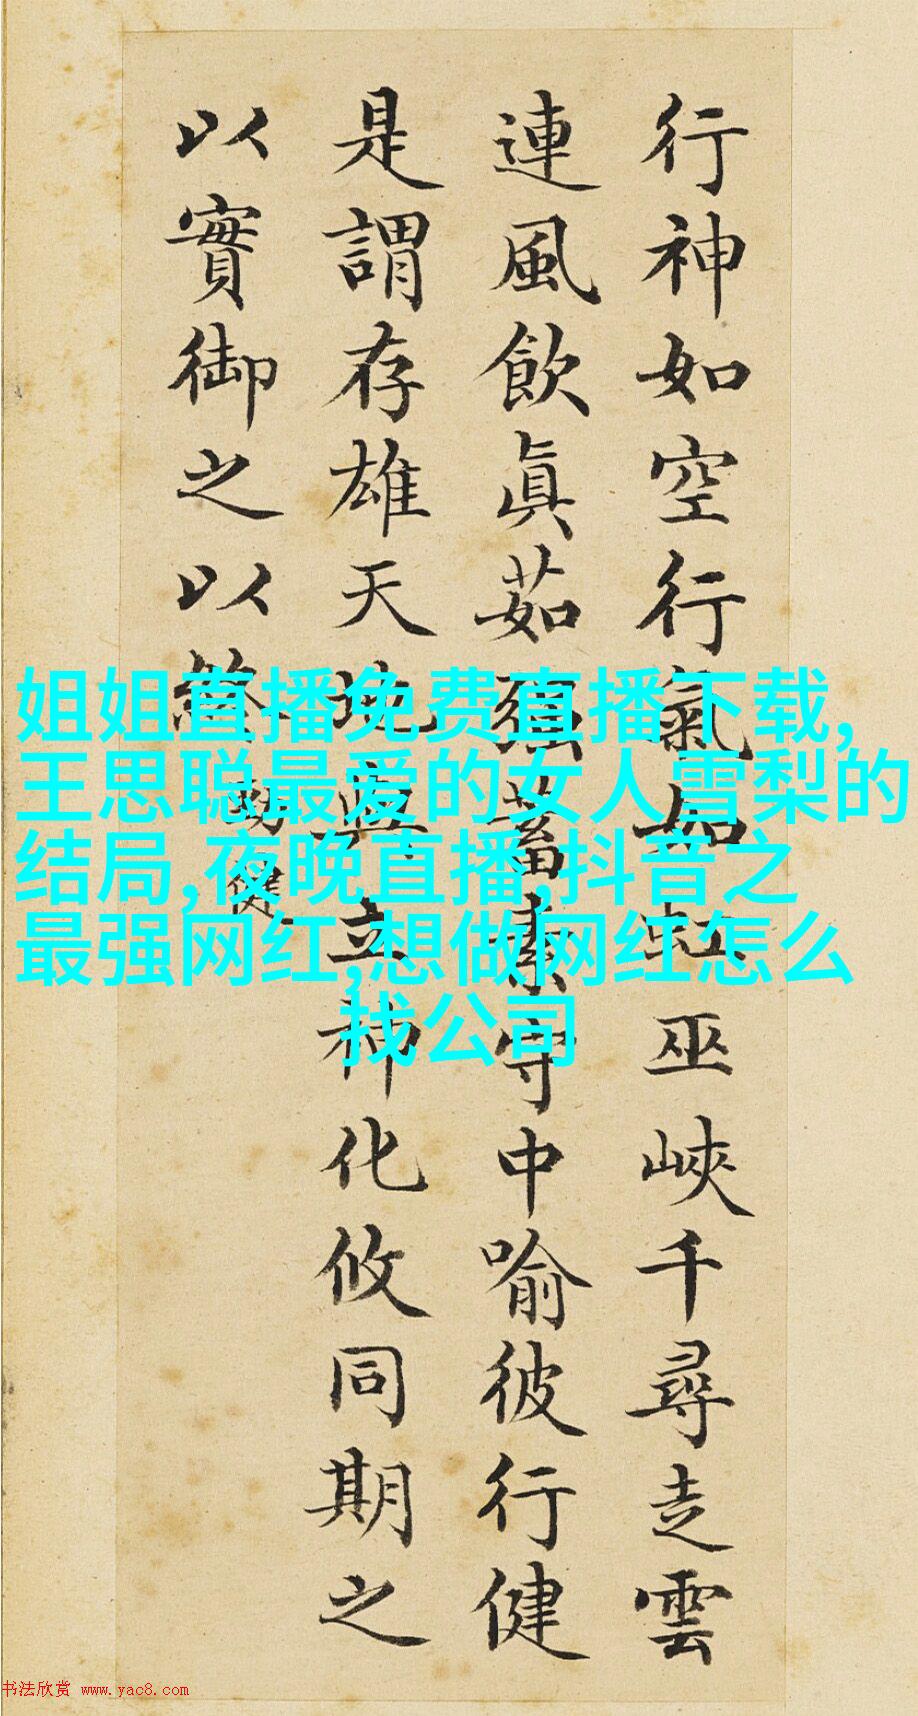 行神如空行氣如虹巫峽千尋走雲
連風飲眞茹強蓄素守中喻彼行健
是謂存雄天地與立神化攸同期之
以實御之以終
勁健
姐姐直播免费直播下载,
王思聪最爱的女人雪梨的
结局,夜晚直播,抖音之
最强网红,想做网红怎么
找公司
书法欣赏 www.yac8.com